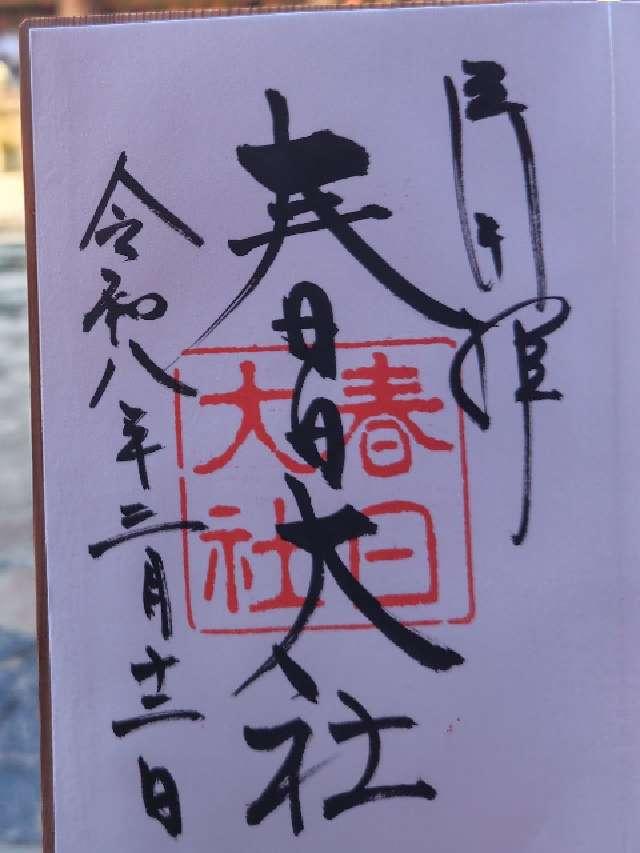 春日大社
令和八年二月十二日
春日
大社